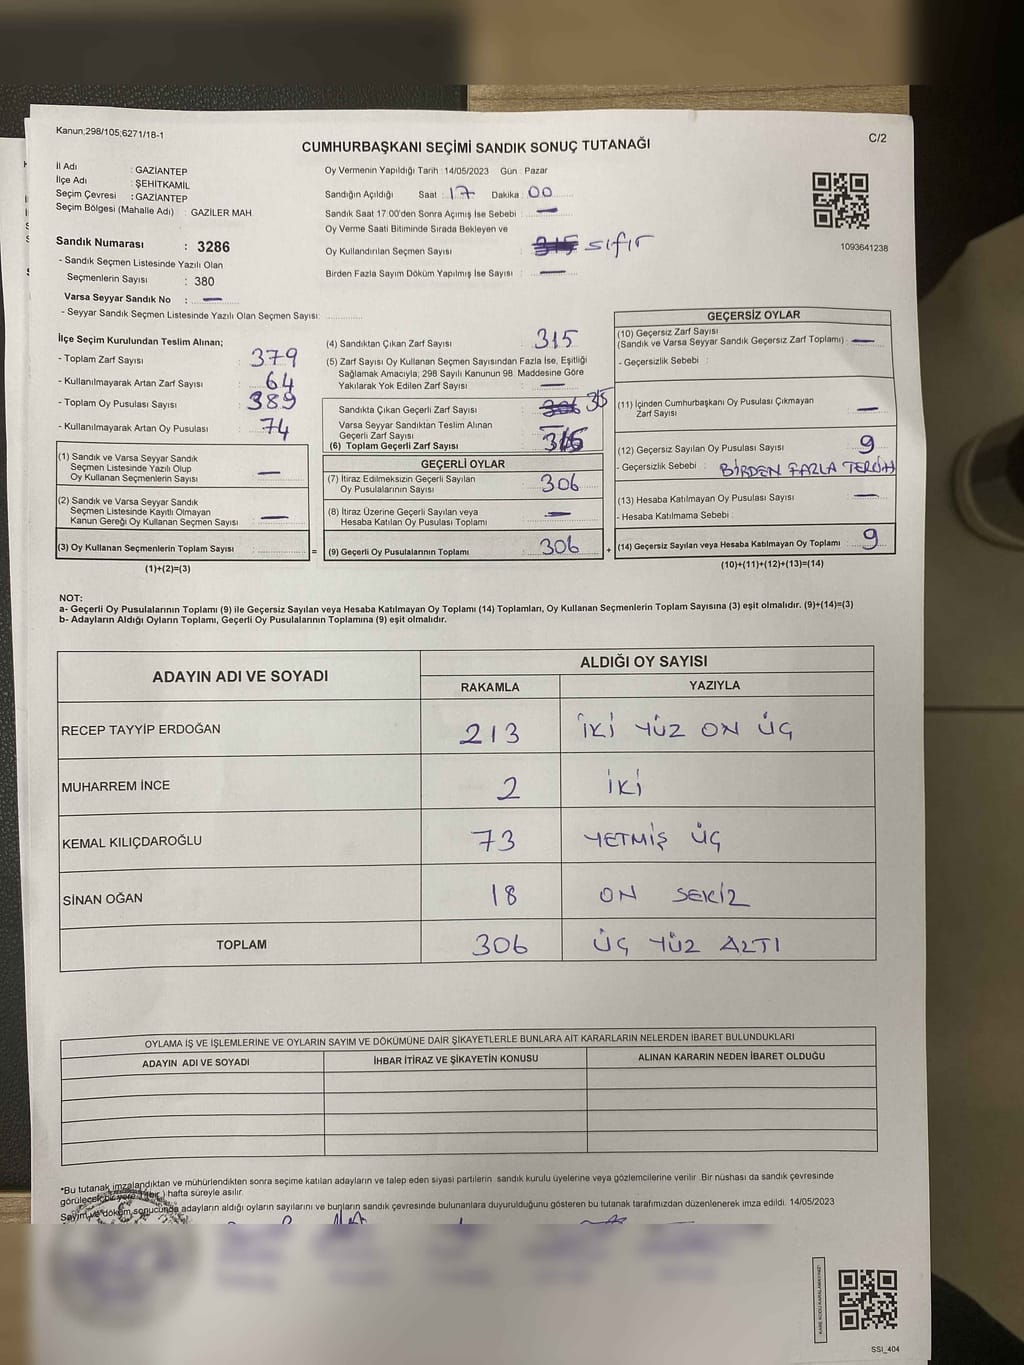 Kanun;298/105;6271/18-1
C/2
CUMHURBAŞKANI SEÇİMİ SANDIK SONUÇ TUTANAĞI
İl Adı : GAZİANTEP
İlçe Adı : ŞEHİTKAMİL
Seçim Çevresi : GAZİANTEP
Seçim Bölgesi (Mahalle Adı) : GAZİLER MAH.
Sandık Numarası : 3286
- Sandık Seçmen Listesinde Yazılı Olan
Seçmenlerin Sayısı : 380
Varsa Seyyar Sandık No : —
- Seyyar Sandık Seçmen Listesinde Yazılı Olan Seçmen Sayısı:
Oy Vermenin Yapıldığı Tarih : 14/05/2023 Gün : Pazar
Sandığın Açıldığı Saat : 17 Dakika : 00
Sandık Saat 17:00'den Sonra Açımış İse Sebebi : —
Oy Verme Saati Bitiminde Sırada Bekleyen ve
Oy Kullandırılan Seçmen Sayısı : sıfır
Birden Fazla Sayım Döküm Yapılmış İse Sayısı : —
1093641238
İlçe Seçim Kurulundan Teslim Alınan;
- Toplam Zarf Sayısı : 379
- Kullanılmayarak Artan Zarf Sayısı : 64
- Toplam Oy Pusulası Sayısı : 389
- Kullanılmayarak Artan Oy Pusulası : 74
(1) Sandık ve Varsa Seyyar Sandık
Seçmen Listesinde Yazılı Olup
Oy Kullanan Seçmenlerin Sayısı : —
(2) Sandık ve Varsa Seyyar Sandık
Seçmen Listesinde Kayıtlı Olmayan
Kanun Gereği Oy Kullanan Seçmen Sayısı : —
(3) Oy Kullanan Seçmenlerin Toplam Sayısı :
(1)+(2)=(3)
=
(4) Sandıktan Çıkan Zarf Sayısı : 315
(5) Zarf Sayısı Oy Kullanan Seçmen Sayısından Fazla İse, Eşitliği
Sağlamak Amacıyla; 298 Sayılı Kanunun 98. Maddesine Göre
Yakılarak Yok Edilen Zarf Sayısı : —
Sandıkta Çıkan Geçerli Zarf Sayısı :
Varsa Seyyar Sandıktan Teslim Alınan
Geçerli Zarf Sayısı : —
(6) Toplam Geçerli Zarf Sayısı :
GEÇERLİ OYLAR
(7) İtiraz Edilmeksizin Geçerli Sayılan
Oy Pusulalarının Sayısı : 306
(8) İtiraz Üzerine Geçerli Sayılan veya
Hesaba Katılan Oy Pusulası Toplamı : —
(9) Geçerli Oy Pusulalarının Toplamı : 306
+
GEÇERSİZ OYLAR
(10) Geçersiz Zarf Sayısı
(Sandık ve Varsa Seyyar Sandık Geçersiz Zarf Toplamı) : —
- Geçersizlik Sebebi :
(11) İçinden Cumhurbaşkanı Oy Pusulası Çıkmayan
Zarf Sayısı : —
(12) Geçersiz Sayılan Oy Pusulası Sayısı : 9
- Geçersizlik Sebebi : BİRDEN FAZLA TERCİH
(13) Hesaba Katılmayan Oy Pusulası Sayısı : —
- Hesaba Katılmama Sebebi :
(14) Geçersiz Sayılan veya Hesaba Katılmayan Oy Toplamı : 9
(10)+(11)+(12)+(13)=(14)
NOT:
a- Geçerli Oy Pusulalarının Toplamı (9) ile Geçersiz Sayılan veya Hesaba Katılmayan Oy Toplamı (14) Toplamları, Oy Kullanan Seçmenlerin Toplam Sayısına (3) eşit olmalıdır. (9)+(14)=(3)
b- Adayların Aldığı Oyların Toplamı, Geçerli Oy Pusulalarının Toplamına (9) eşit olmalıdır.
ADAYIN ADI VE SOYADI
ALDIĞI OY SAYISI
RAKAMLA YAZIYLA
RECEP TAYYİP ERDOĞAN 213 İKİ YÜZ ON ÜÇ
MUHARREM İNCE 2 İKİ
KEMAL KILIÇDAROĞLU 73 YETMİŞ ÜÇ
SİNAN OĞAN 18 ON SEKİZ
TOPLAM 306 ÜÇ YÜZ ALTI
OYLAMA İŞ VE İŞLEMLERİNE VE OYLARIN SAYIM VE DÖKÜMÜNE DAİR ŞİKAYETLERLE BUNLARA AİT KARARLARIN NELERDEN İBARET BULUNDUKLARI
ADAYIN ADI VE SOYADI İHBAR İTİRAZ VE ŞİKAYETİN KONUSU ALINAN KARARIN NEDEN İBARET OLDUĞU
*Bu tutanak imzalandıktan ve mühürlendikten sonra seçime katılan adayların ve talep eden siyasi partilerin sandık kurulu üyelerine veya gözlemcilerine verilir. Bir nüshası da sandık çevresinde
görülecek bir yere (bir) hafta süreyle asılır.
Sayım ve döküm sonucunda adayların aldığı oyların sayılarını ve bunların sandık çevresinde bulunanlara duyurulduğunu gösteren bu tutanak tarafımızdan düzenlenerek imza edildi. 14/05/2023
KARE KODU KARALAMAYINIZ!
SSI_404